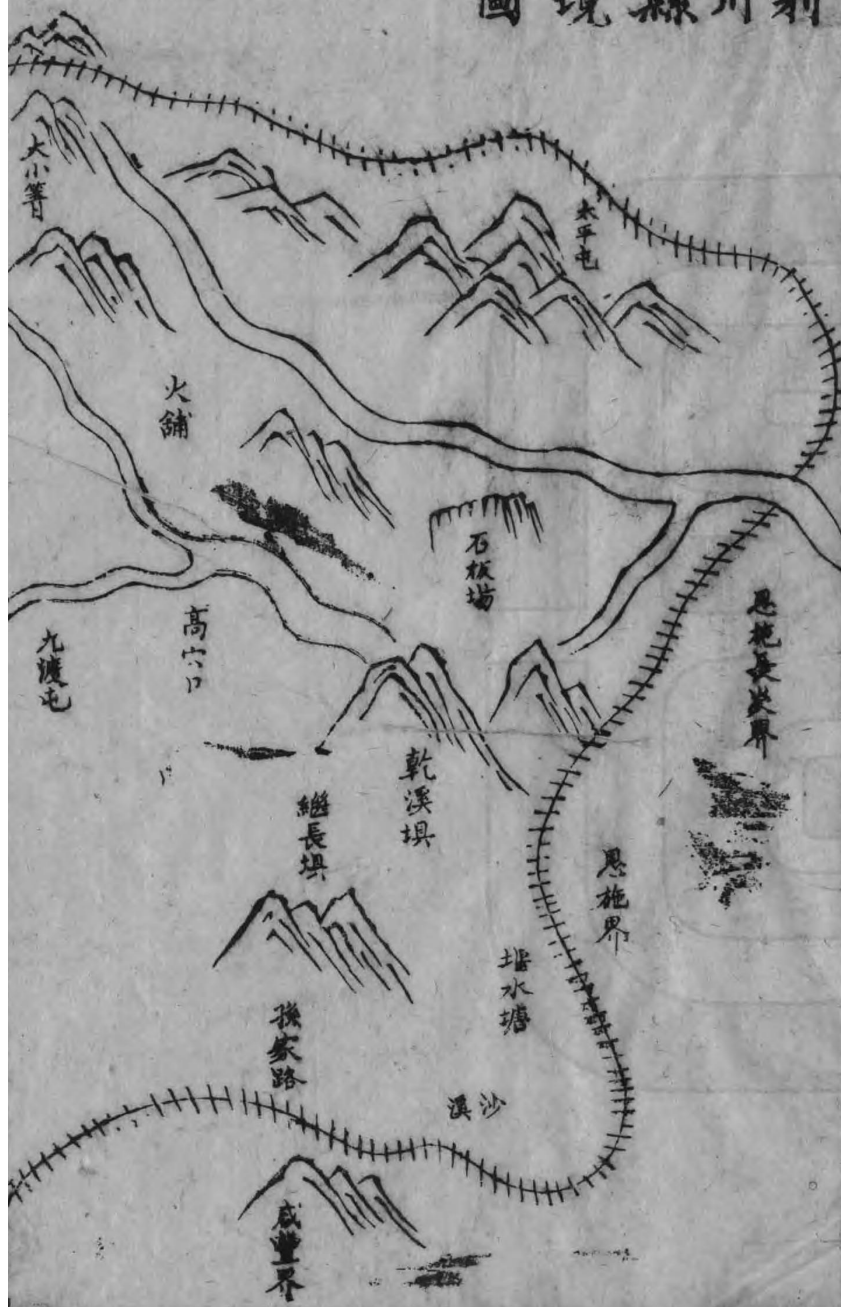 利川縣境圖
太平屯
大小箐
火鋪
石板場
恩施長炎界
高穴口
九渡屯
乾溪壩
繼長壩
恩施界
堰水塘
孫家路
沙溪
咸豐界